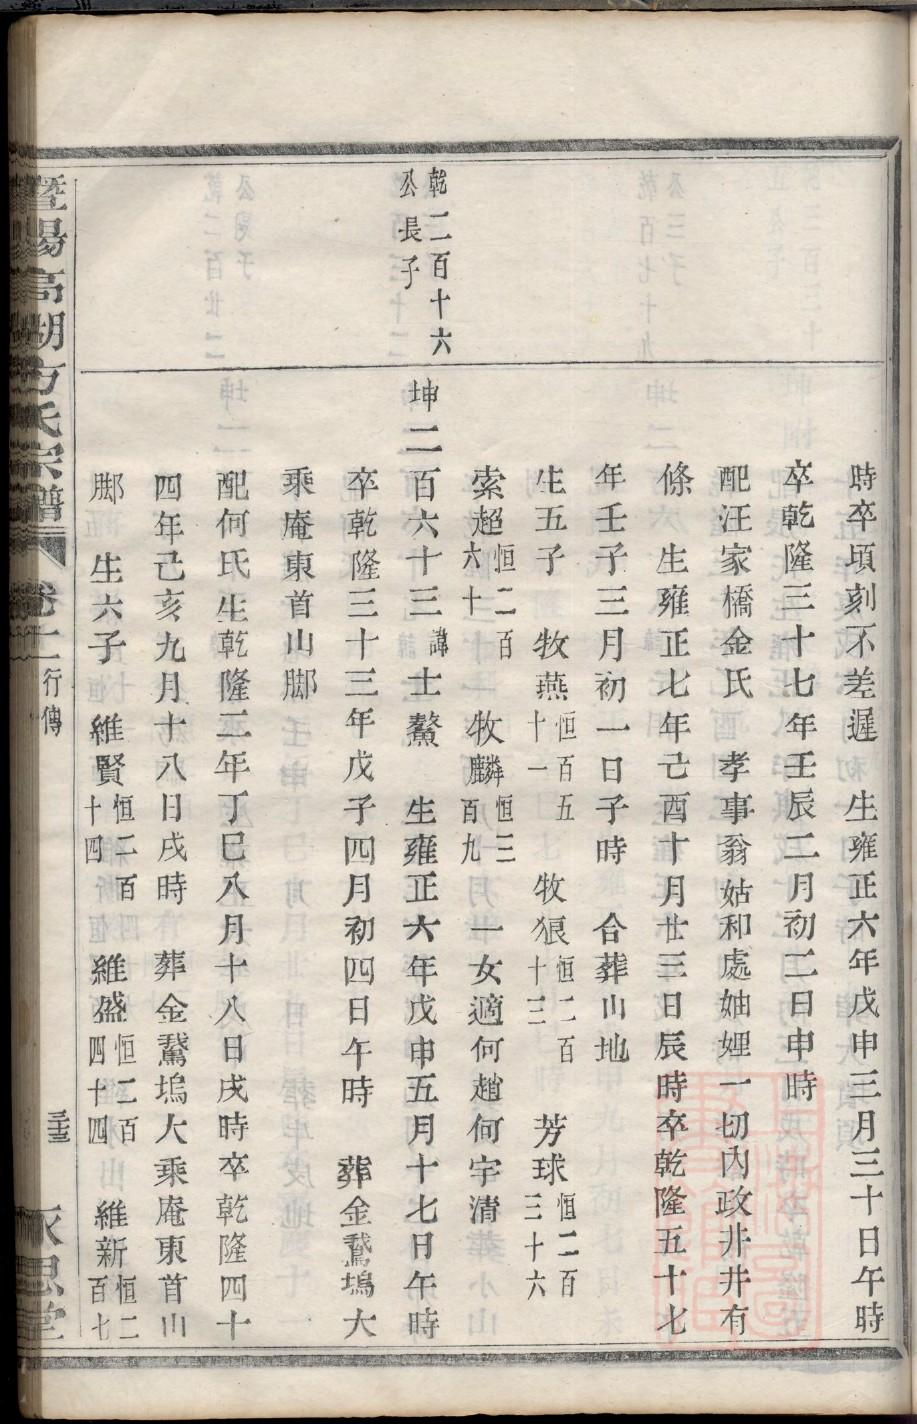 時卒頃刻不差遲　生雍正六年戊申三月三十日午時
卒乾隆三十七年壬辰二月初二日申時
配汪家橋金氏　孝事翁姑和處妯娌一切內政井井有
條　生雍正七年己酉十月廿三日辰時卒乾隆五十七
年壬子三月初一日子時　合葬山地
生五子　牧燕恒百五十一　牧狼恒二百十三　芳球恒二百三十六
索超恒二百六十　牧麟恒三百九　一女適何趙何宇清
乾二百十六
公長子
坤二百六十三諱士鰲　生雍正六年戊申五月十七日午時
卒乾隆三十三年戊子四月初四日午時　葬金鵞塢大
乘庵東首山脚
配何氏生乾隆二年丁巳八月十八日戌時卒乾隆四十
四年己亥九月十八日戌時　葬金鵞塢大乘庵東首山
脚　生六子　維賢恒二百十四　維盛恒二百四十四　維新恒二百七
暨陽高湖方氏宗譜　卷十二　行傳　永思堂